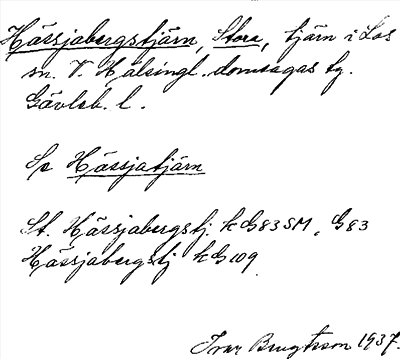 Hässjabergstjärn, Stora, tjärn i Los
sn. V. Hälsingl. domsagas tg.
Gävleb. l.
Se Hässjatjärn
St. Hässjabergstj. k G83SM, G83
Hässjabergstj k G109
Ivar Bengtsson 1937.